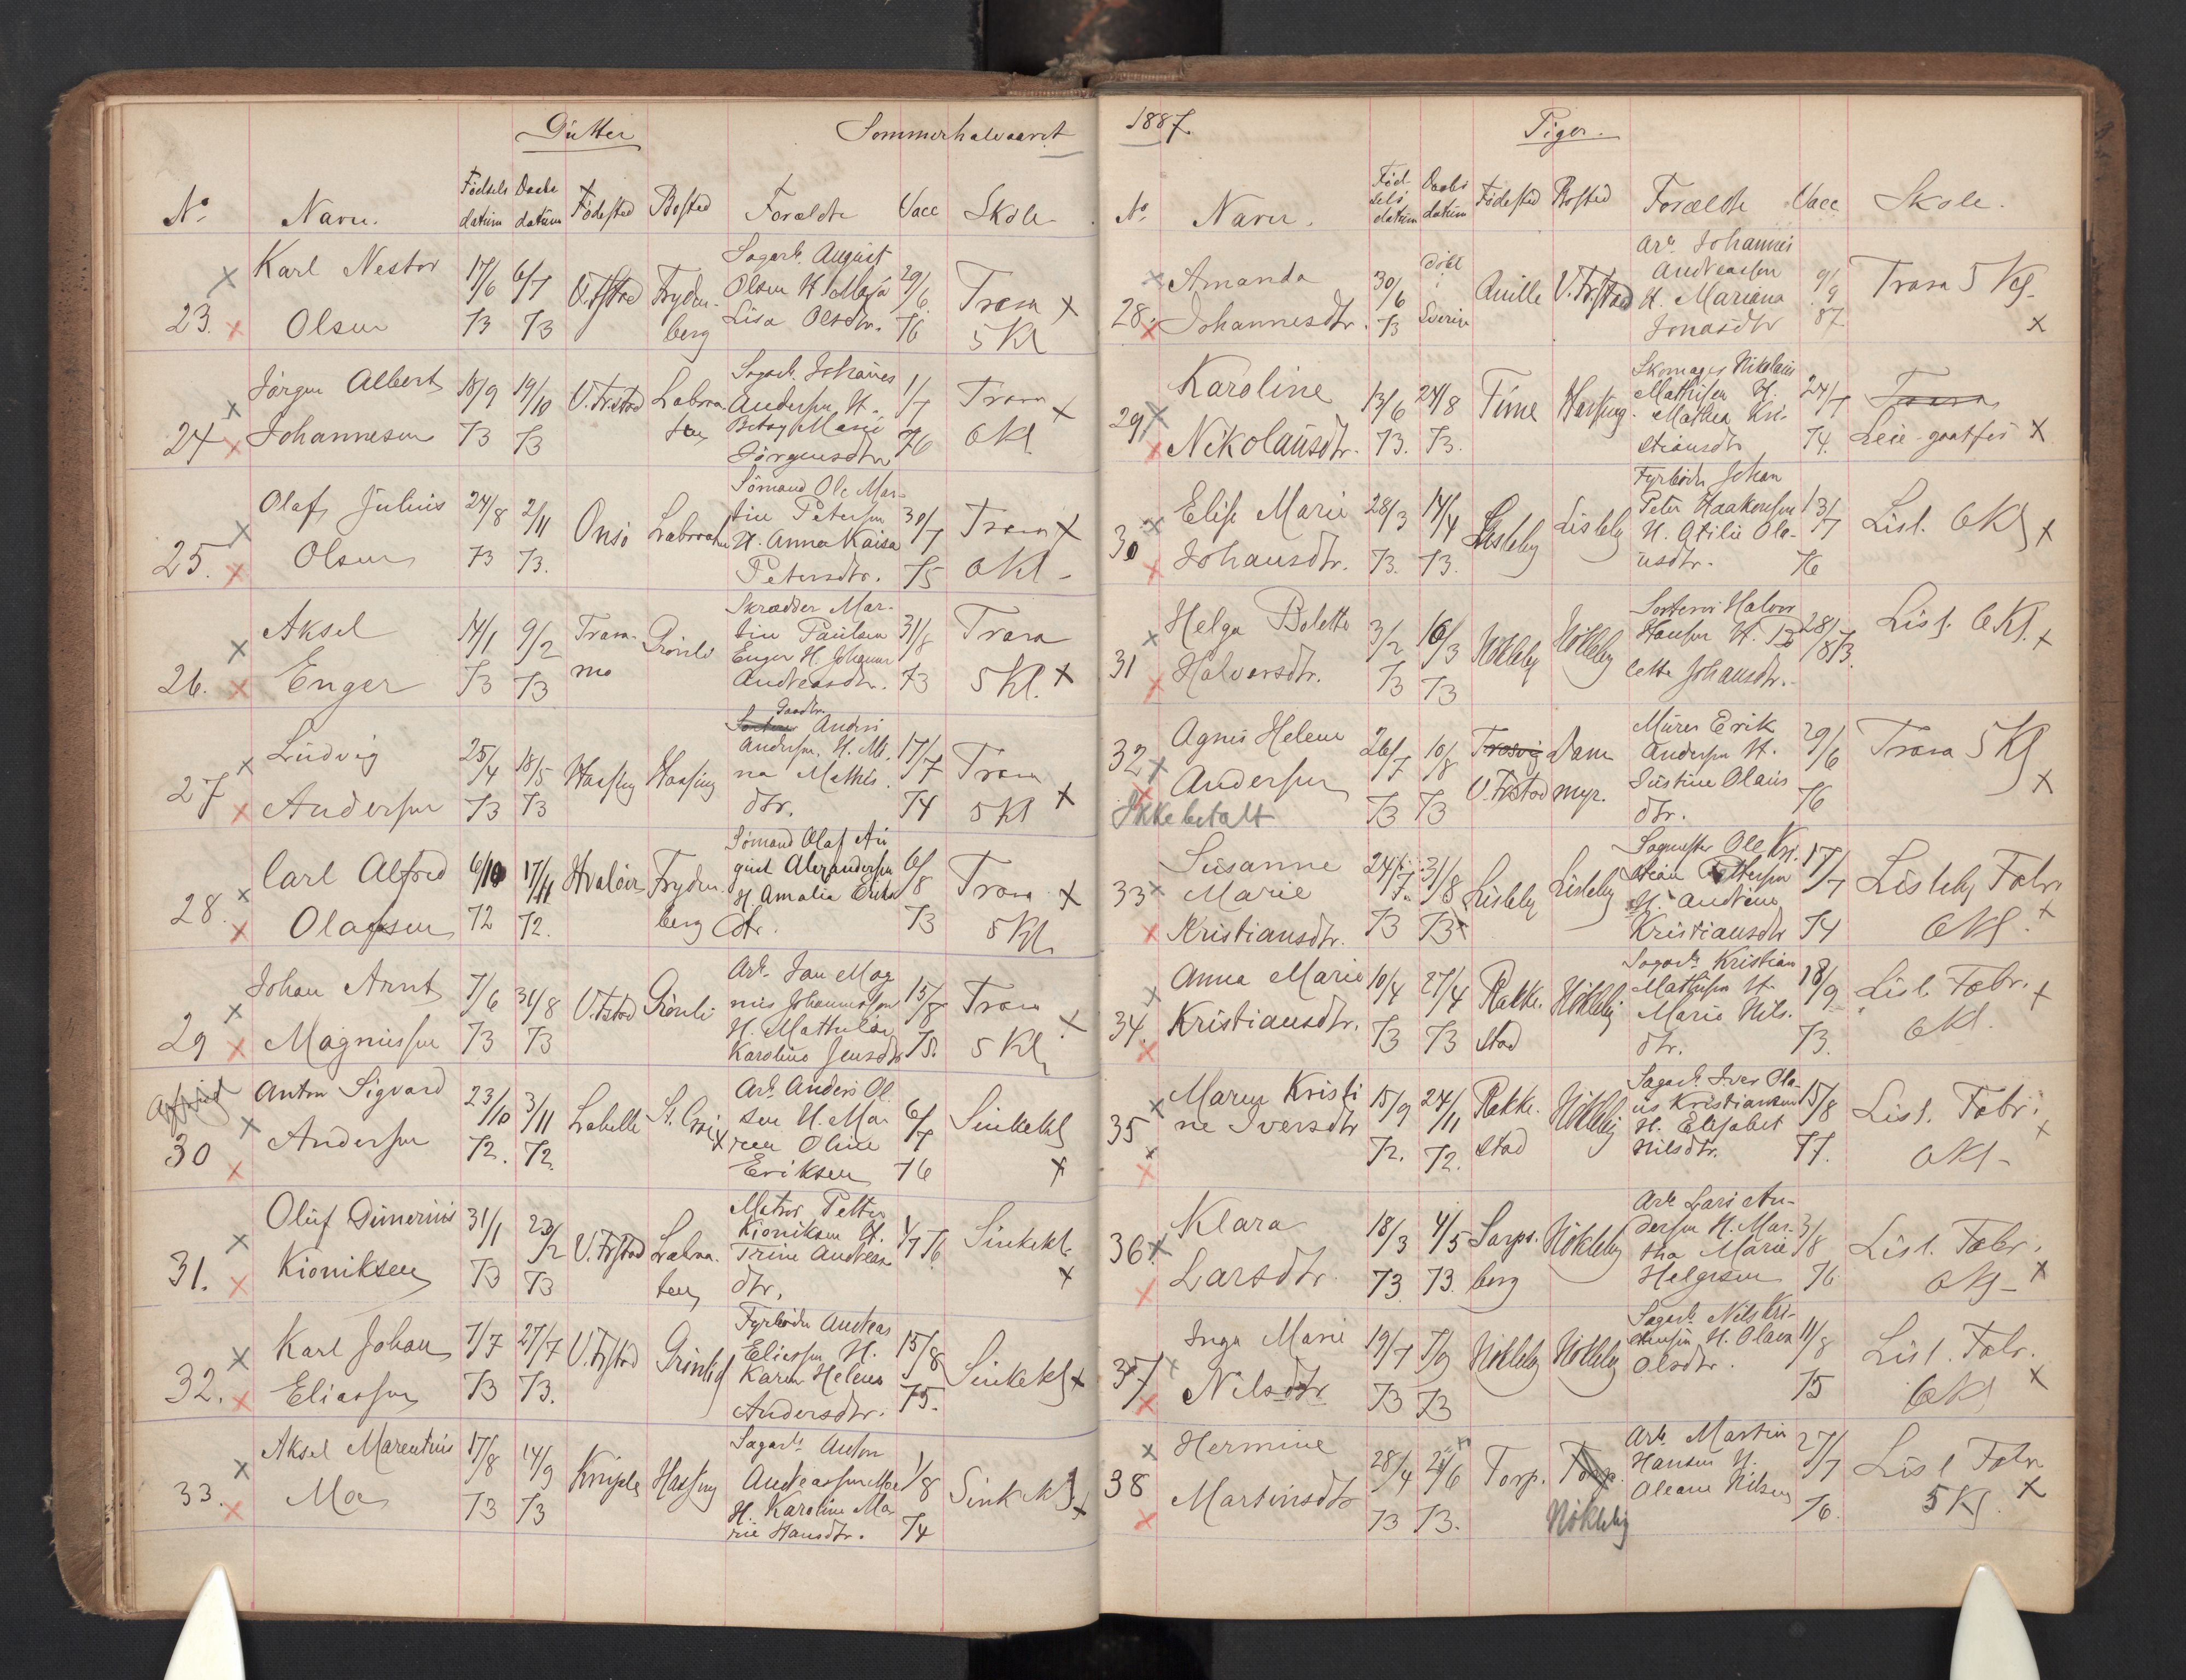 Gutter Sommerhalvaaret
No Navn. Fødsels datum Daabs datum Fødested Bosted Forældre Vacc Skole
23. Karl Nestor Olsen 17/6 73 6/7 73 V. Fr.stad Frydenberg
Sagarb. August
Olsen H. Maja
Lisa Olsdtr. 29/6 76
Trara 5 Kl
24 Jørgen Albert Johannesen 18/9 73 19/10 73 V. Frstad
Sagarb. Johannes
Andersen H.
Betsy Marie
Jørgensdtr 1/7 76
Trara 6 Kl
25. Olaf Julius Olsen 24/8 73 2/11 73. Onsø
Sømand Ole Mar-
tin Petersen
H. Anna Kaisa
Petersdtr. 30/7 75
Trara 6 Kl -
26. Aksel Enger 14/1 73 9/2 73 Grønli
Skrædder Mar-
tin Paulsen
Enger H. Johanne
Andreasdtr. 31/8 73
Trara 5 Kl.
27 Ludvig Andersen 25/4 73 18/5 73 Haffing Haffing
Gaardbr.
Anders
Andersen. H. Mi-
na Mathis.
dtr. 17/7 74
Trara 5 Kl
28. Carl Alfred Olafsen 6/10 72 17/11 72. Hvaløer Frydenberg
Sømand Olaf Au
gust Alexandersen
H. Amalia Eriks
dtr. 6/8 73
Trara 5 Kl
29 Johan Arnt Magnussen 7/6 73 31/8 73 V. Frstad Grønli
Arb. Jan Mag
nus Johannessen
H. Mathilde
Karoline Jensdtr 15/8 75.
Trara 5 Kl
30 Anton Sigvard Andersen 23/10 72. 3/11 72.
Arb. Anders Ol
sen H. Ma
ren Oline
Eriksen 6/7 76
Sinkekl
31. Oluf Kioniksen 31/1 73 23/2 73 V. Frstad
Matros Petter
Kioniksen H.
Trine Andreas
dtr. 1/7 76
Sinkekl.
32. Karl Johan Eliassen 7/7 73 27/7 73. V. Frstad Grønli
Fyrbøder Andreas
Eliassen H.
Karen Helene
Andersdtr. 15/8 75.
Sinkekl
33. Aksel Marentius Moe 17/8 73 14/9 73 Kniple Haffing
Sagarb. Anton
Andreassen Moe
H. Karoline Ma
rie Hansdtr. 1/8 74
Sinkekl
1887. Piger.
No. Navn. Fødsels datum Daabs datum Fødested Bosted Forældre Vacc Skole.
28. Amanda Johannesdtr. 30/6 73 døbt i Sverige Quille V. Fr.stad
Arb. Johannes
Andreasson
H. Mariana
Jonasdtr 9/9 87.
Trara 5 Kl.
29 Karoline Nikolausdtr. 13/6 73. 24/8 73. Tune Haffing.
Skomager Nikolaus
Mathisen H.
Mathea Kri-
stiansdtr 24/7 74.
Trara
30 Elise Marie Johansdtr. 28/3 73. 14/4 73. Lisleby Lisleby
Fyrbøder Johan
Peter Haakonsen
H. Otilie Ola-
usdtr. 13/7 76
Lisl. 6 Kl
31 Helga Bolette Halvorsdtr. 3/2 73 16/3 73 Nøkleby Nøkleby
Halvor
Hansen H. Bo
lette Johansdtr. 28/8 73.
Lisl. 6 Kl.
32 Agnes Helene Andersen 26/7 73 10/8 73 Trosvig V. Frstad Dam myr.
Murer Erik
Andersen H.
Justine Olaus
dtr. 29/6 76
Trara 5 Kl
Ikke betalt
33 Susanne Marie Kristiansdtr. 24/7 73 31/8 73 Lisleby Lisleby
Sagmester Ole Kri-
stian Pettersen
H. Andrine
Kristiansdtr 17/7 74
Lisleby Fabr 6 Kl.
34. Anna Marie Kristiansdtr. 10/4 73 27/4 73 Rakkestad Nøkleby
Sagarb. Kristian
Mathisen H.
Marie Nils.
dtr. 18/9 73.
Lisl. Fabr. 6 Kl.
35 Maren Kristine Iversdtr 15/9 72. 24/11 72. Rakkestad Nøkleby
Sagarb. Iver Ola-
us Kristiansen
H. Elisabet
Nilsdtr. 15/8 77.
Lisl. Fabr. 6 Kl -
36. Klara Larsdtr. 18/3 73. 4/5 73. Sarpsberg Nøkleby
Arb. Lars An-
dersen H. Mar-
tha Marie
Helgesen 3/8 76
Lisl. Fabr. 6 Kl -
37 Inga Marie Nilsdtr 19/7 73 7/9 73 Nøkleby Nøkleby
Sagarb. Nils Kri-
stensen H. Olava
Olsdtr. 11/8 75
Lisl. Fabr. 6 Kl
38 Hermine Martinsdtr 28/4 73 73. Torp. Torp. Nøkleby
Arb. Martin
Hansen H.
Oleane Nilsen 27/7 76.
Lisl Fabr 5 Kl.